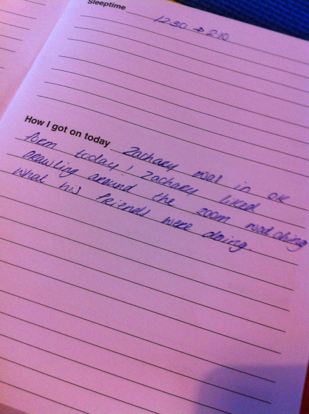 Sleeptime
12:30 → 2:10
How I got on today Zachary was in ok
form today! Zachary liked
crawling around the room watching
what his friends were doing.